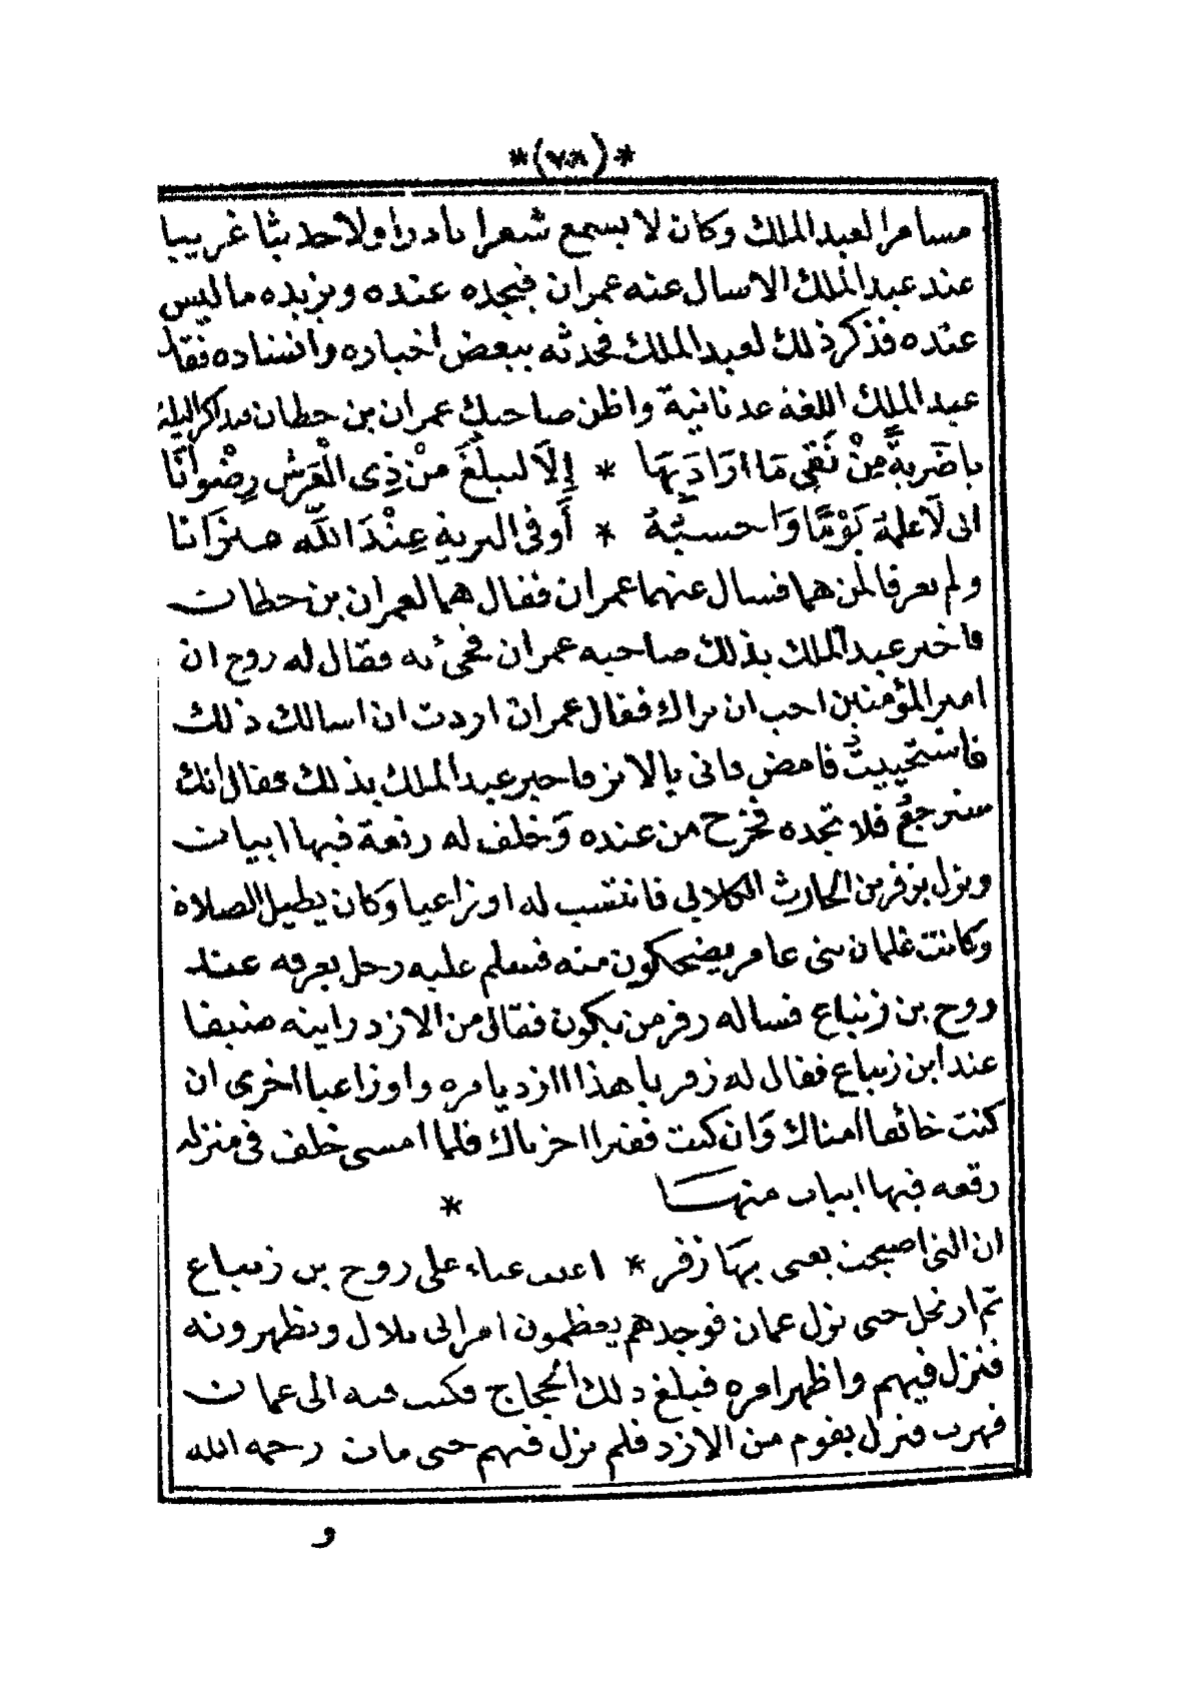 *(٧٨)*
مسامرا لعبد الملك وكان لا يسمع شعرا نادرا ولا حديثا غريبا
عند عبد الملك الا سال عنه عمران فيجده عنده ويزيده ما ليس
عنده فذكر ذلك لعبد الملك فحدثه ببعض اخباره وانشاده فقال
عبد الملك اللغة عدنانية واظن صاحبك عمران بن حطان الليلة
يا ضَربةً مِنْ تَقِي مَا ارَادَ بِهَا * إِلاَّ ليبلُغَ مِنْ ذِى العَرشِ رِضْوانَا
انى لَا علمهُ يَوْمًا وَاحسبُهُ * أَوفى البريةِ عِنْدَ اللَّه ميزَانا
ولم يعرفا لمن هما فسال عنهما عمران فقال هما لعمران بن حطان
فاخبر عبد الملك بذلك صاحبه عمران فجئ به فقال له روح ان
امير المؤمنين احب ان يراك فقال عمران اردت ان اسالك ذلك
فاستحييت فامض فانى بالاثر فاخبر عبد الملك بذلك فقال انك
سترجعُ فلا تجده فخرج من عنده وَخلف له رقعة فيها ابيات
ونزل بزفر بن الحارث الكلابي فانتسب له اوزاعيا وكان يطيل الصلاة
وكانت غلمان بنى عامر يضحكون منه فسلم عليه رجل يعرفه عند
روح بن زنباع فساله زفر من يكون فقال من الازد رايته ضيفا
عند ابن زنباع فقال له زفر يا هذا ازديا مره واوزاعيا اخرى ان
كنت خائفا امناك وَان كنت فقيرا اجزناك فلما امسى خلف فى منزله
رقعه فيها ابيات منهــا *
ان التى اصبحت يعيى بِهَا زُفر * اعيت عياء على روح بن زنباع
ثم ارتحل حتى نزل عمان فوجدهم يعظمون امر ابى بلال ويظهرونه
فنزل فيهم واظهر امره فبلغ ذلك الحجاج فكتب فيه الى عمان
فهرب فنزل بقوم من الازد فلم يزل فيهم حتى مات رحمه الله
و